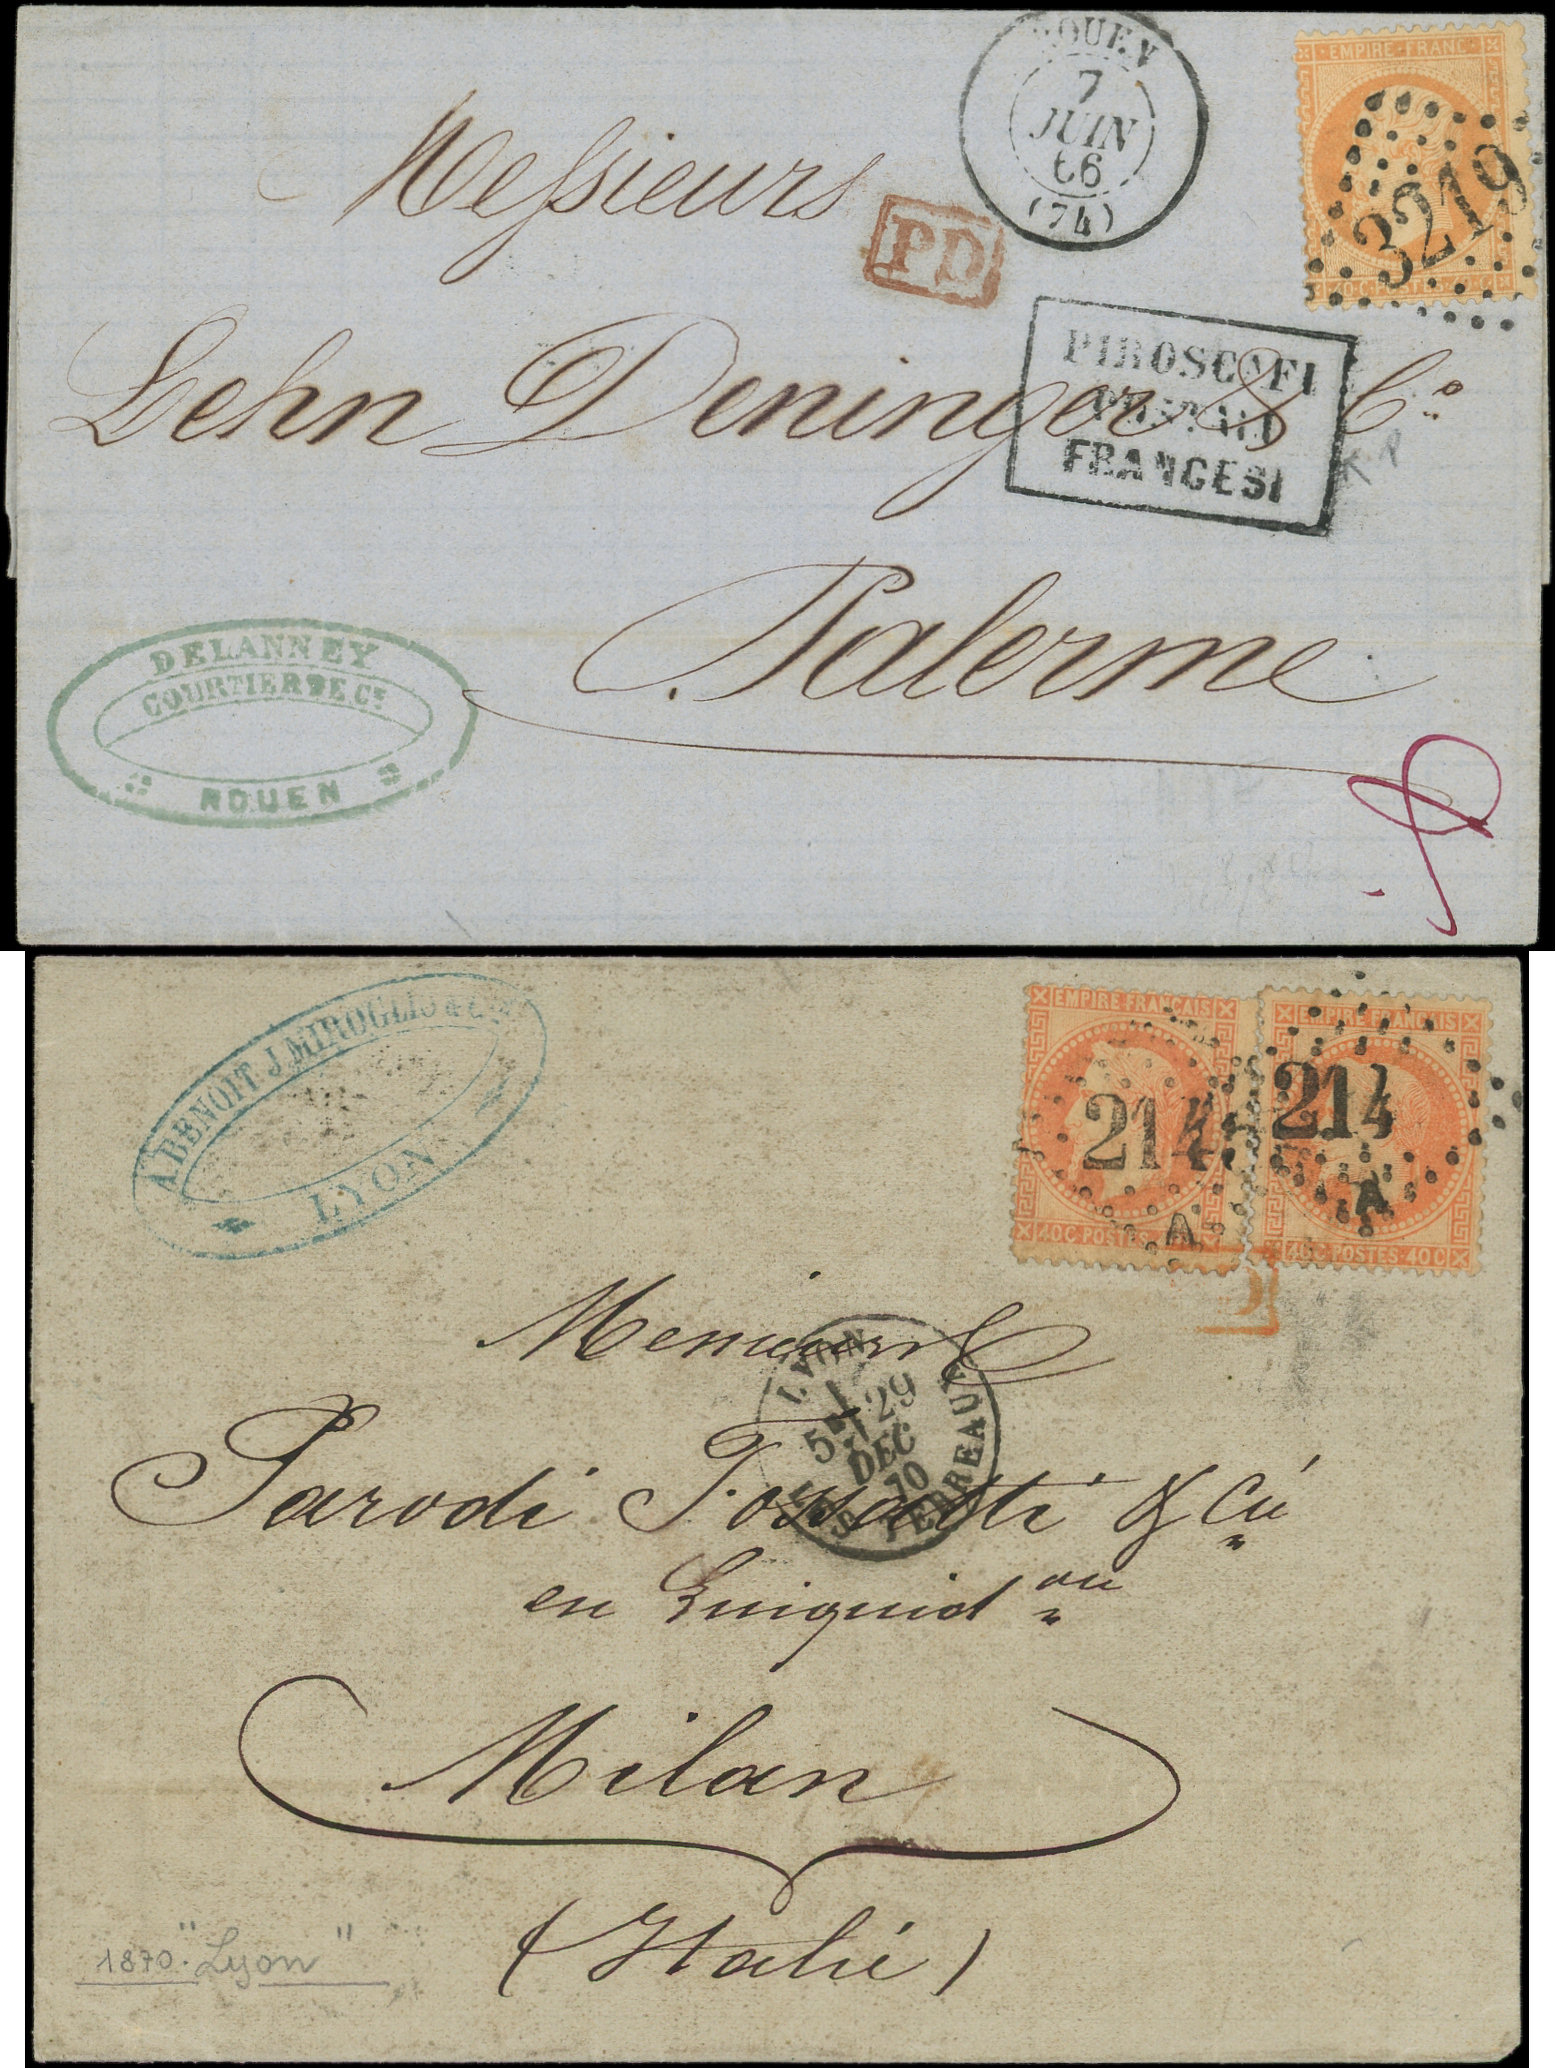 ROUEN
7
JUIN
66
(74)
EMPIRE FRANC
3219
40 C POSTES 40 C
Messieurs
PD
PIROSCAFI
POSTALI
FRANCESI
Lehn Deninger & Co
Palerme
DELANNEY
COURTIER DE Ce
ROUEN
A. BENOIT J. MIROGLIO & Cie
LYON
EMPIRE FRANÇAIS
2145
A
40 C POSTES
EMPIRE FRANÇAIS
2145
A
40 C POSTES 40 C
Messieurs
LYON
29
DEC
70
LES TERREAUX
Parodi Fossati & Cie
en Luiquid on
Milan
(Italie)
1870. "Lyon"